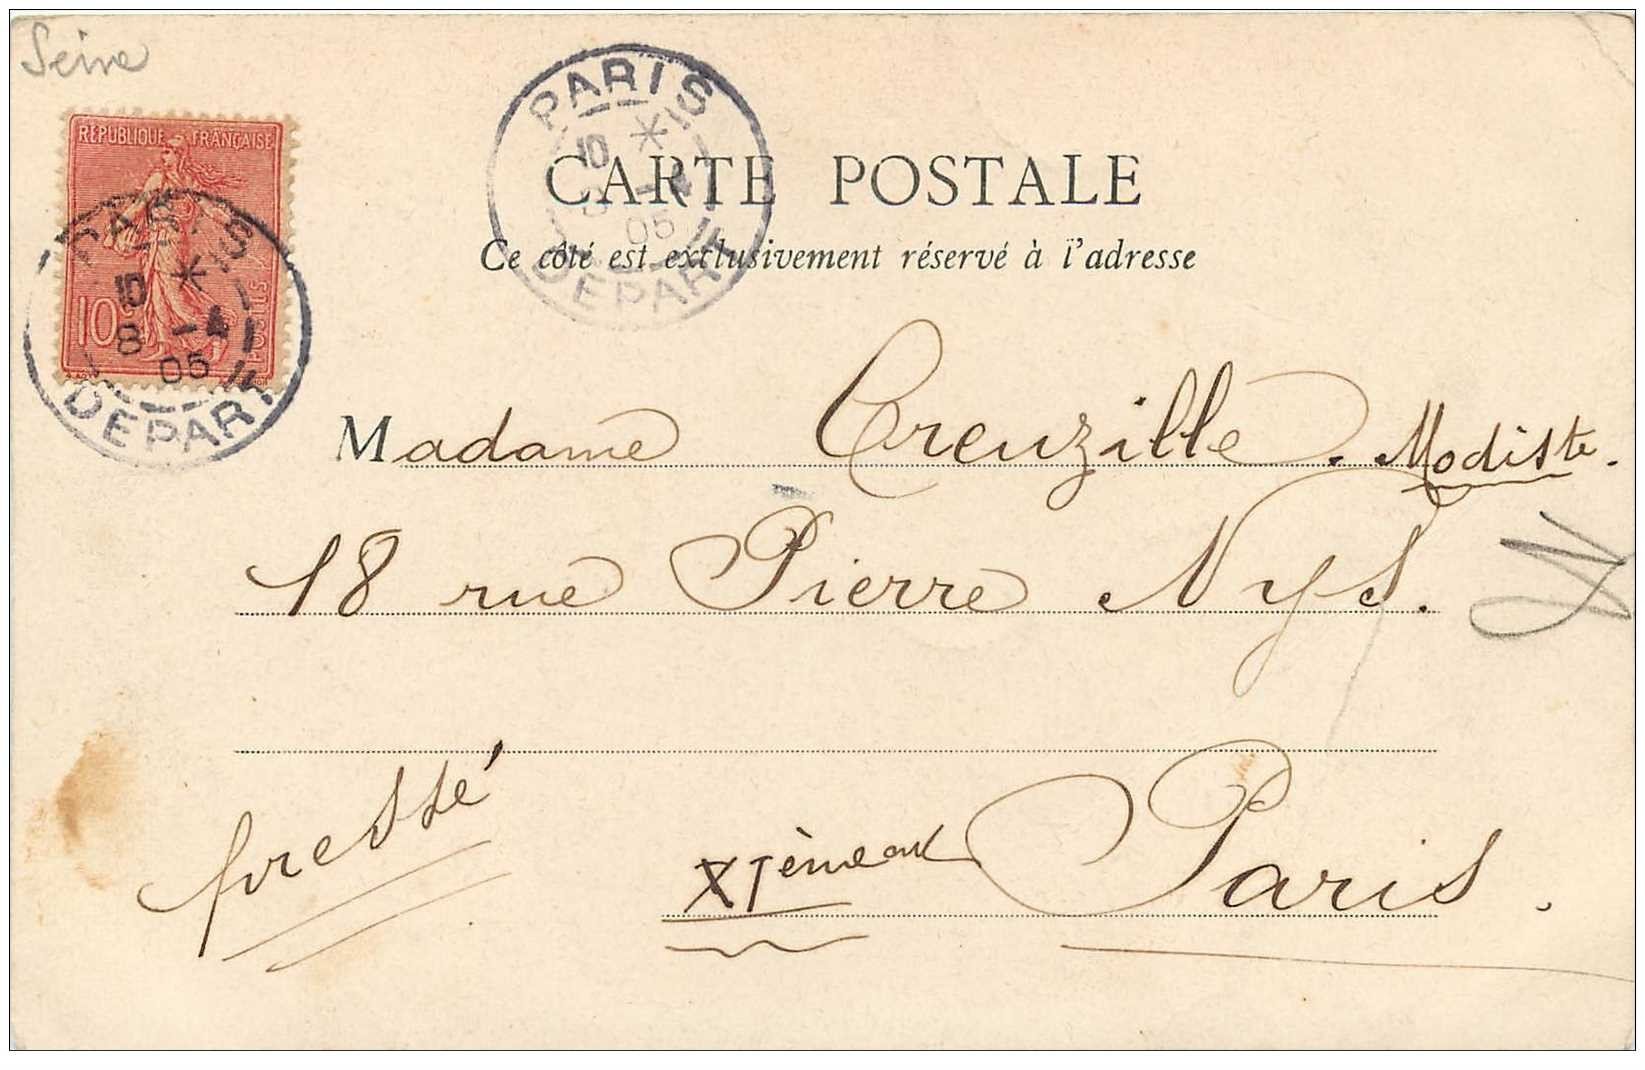 Seine
REPUBLIQUE FRANÇAISE
10
POSTES
PARIS 15
10 *
8 -4
05
DEPART
PARIS 15
10 *
8 -4
05
DEPART
CARTE POSTALE
Ce côté est exclusivement réservé à l'adresse
Madame Creuzille. Modiste.
18 rue Pierre Nys.
pressé
XIème Paris.